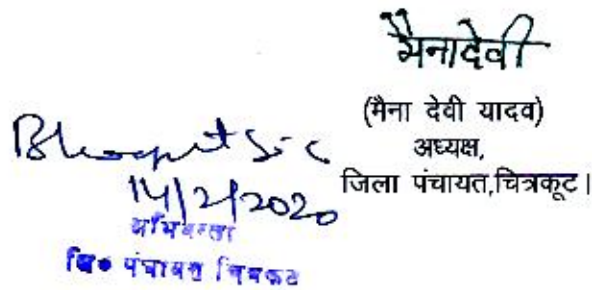 मैनादेवी
(मैना देवी यादव)
अध्यक्ष,
जिला पंचायत,चित्रकूट।
14/2/2020
अभियन्ता
जि० पंचायत चित्रकूट